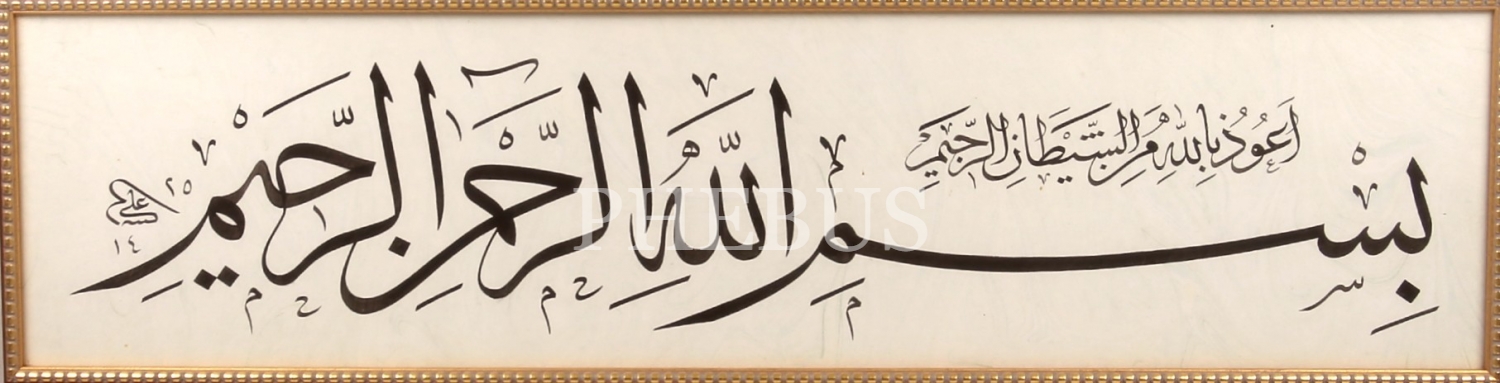 اَعُوذُ بِاللهِ مِنَ الشَّيْطَانِ الرَّجِيمِ
بِسْمِ اللهِ الرَّحْمٰنِ الرَّحِيمِ
علي
١٤٢٥
PHEBUS